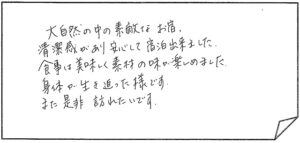 大自然の中の素敵なお宿。
清潔感があり安心して宿泊出来ました。
食事は美味しく素材の味が楽しめました。
身体が生き返った様です。
また是非 訪れたいです。